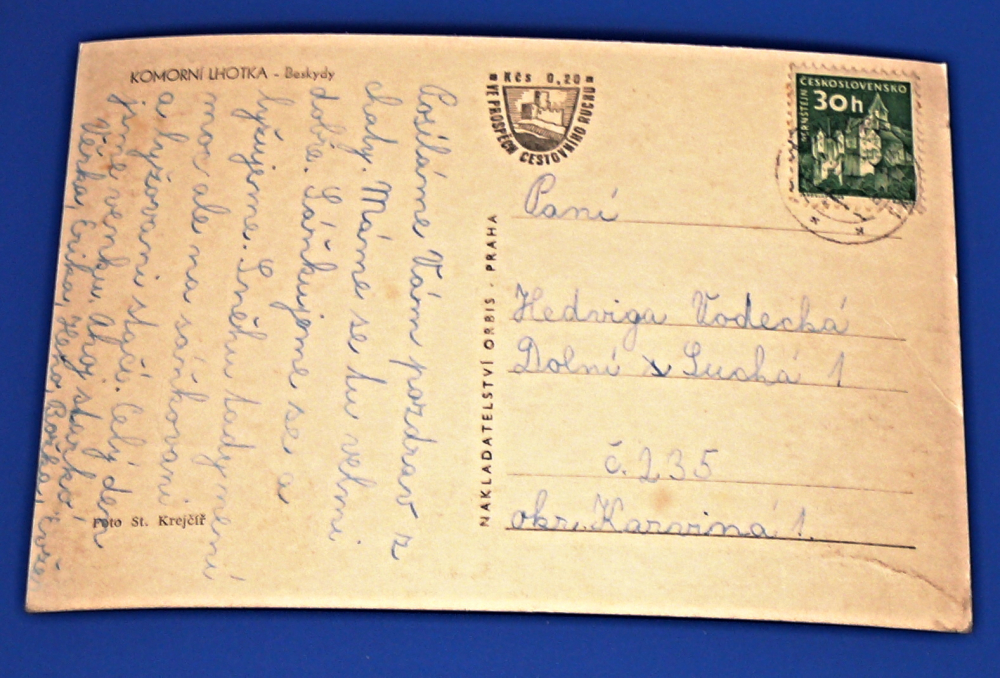 KOMORNÍ LHOTKA - Beskydy
Posíláme Vám pozdrav z
chaty. Máme se tu velmi
dobře. Sáňkujeme se a
lyžujeme. Sněhu tady není
moc ale na sáňkovaní
a lyžovaní stačí. Celý den
jsme venku. Ahoj stařko!
Věrka, Erika, Helva, Bořka,
Foto St. Krejčíř
NAKLADATELSTVÍ ORBIS · PRAHA
Kčs 0,20
VE PROSPĚCH CESTOVNÍHO RUCHU
ČESKOSLOVENSKO
30h
PERNŠTEJN
Paní
Hedviga Vodecká
Dolní Suchá 1
č. 235
okr. Karviná 1.